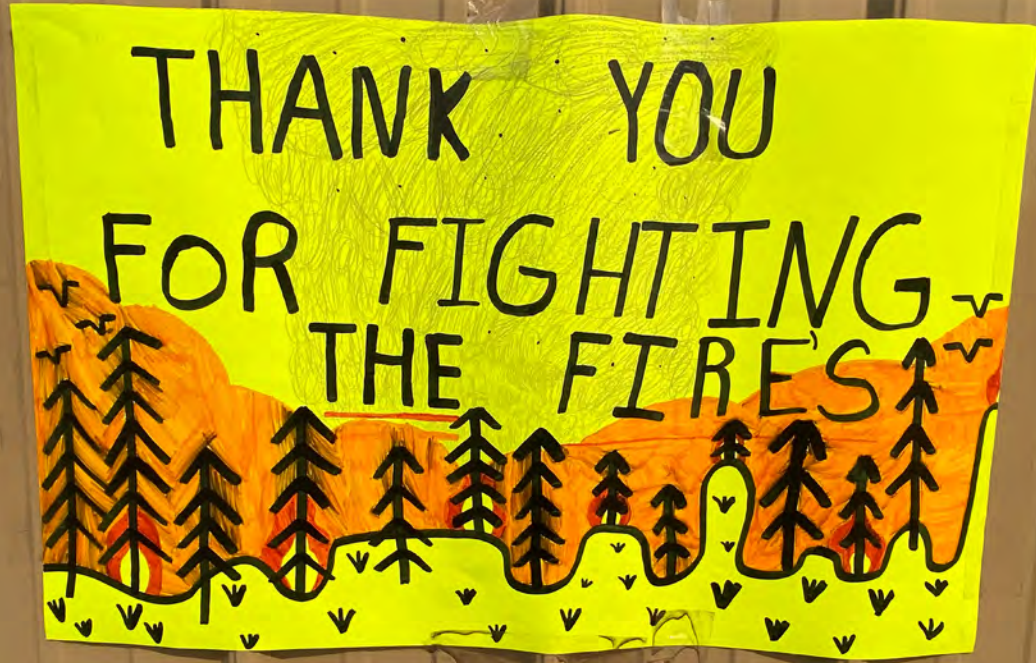 THANK YOU
FOR FIGHTING
THE FIRE'S